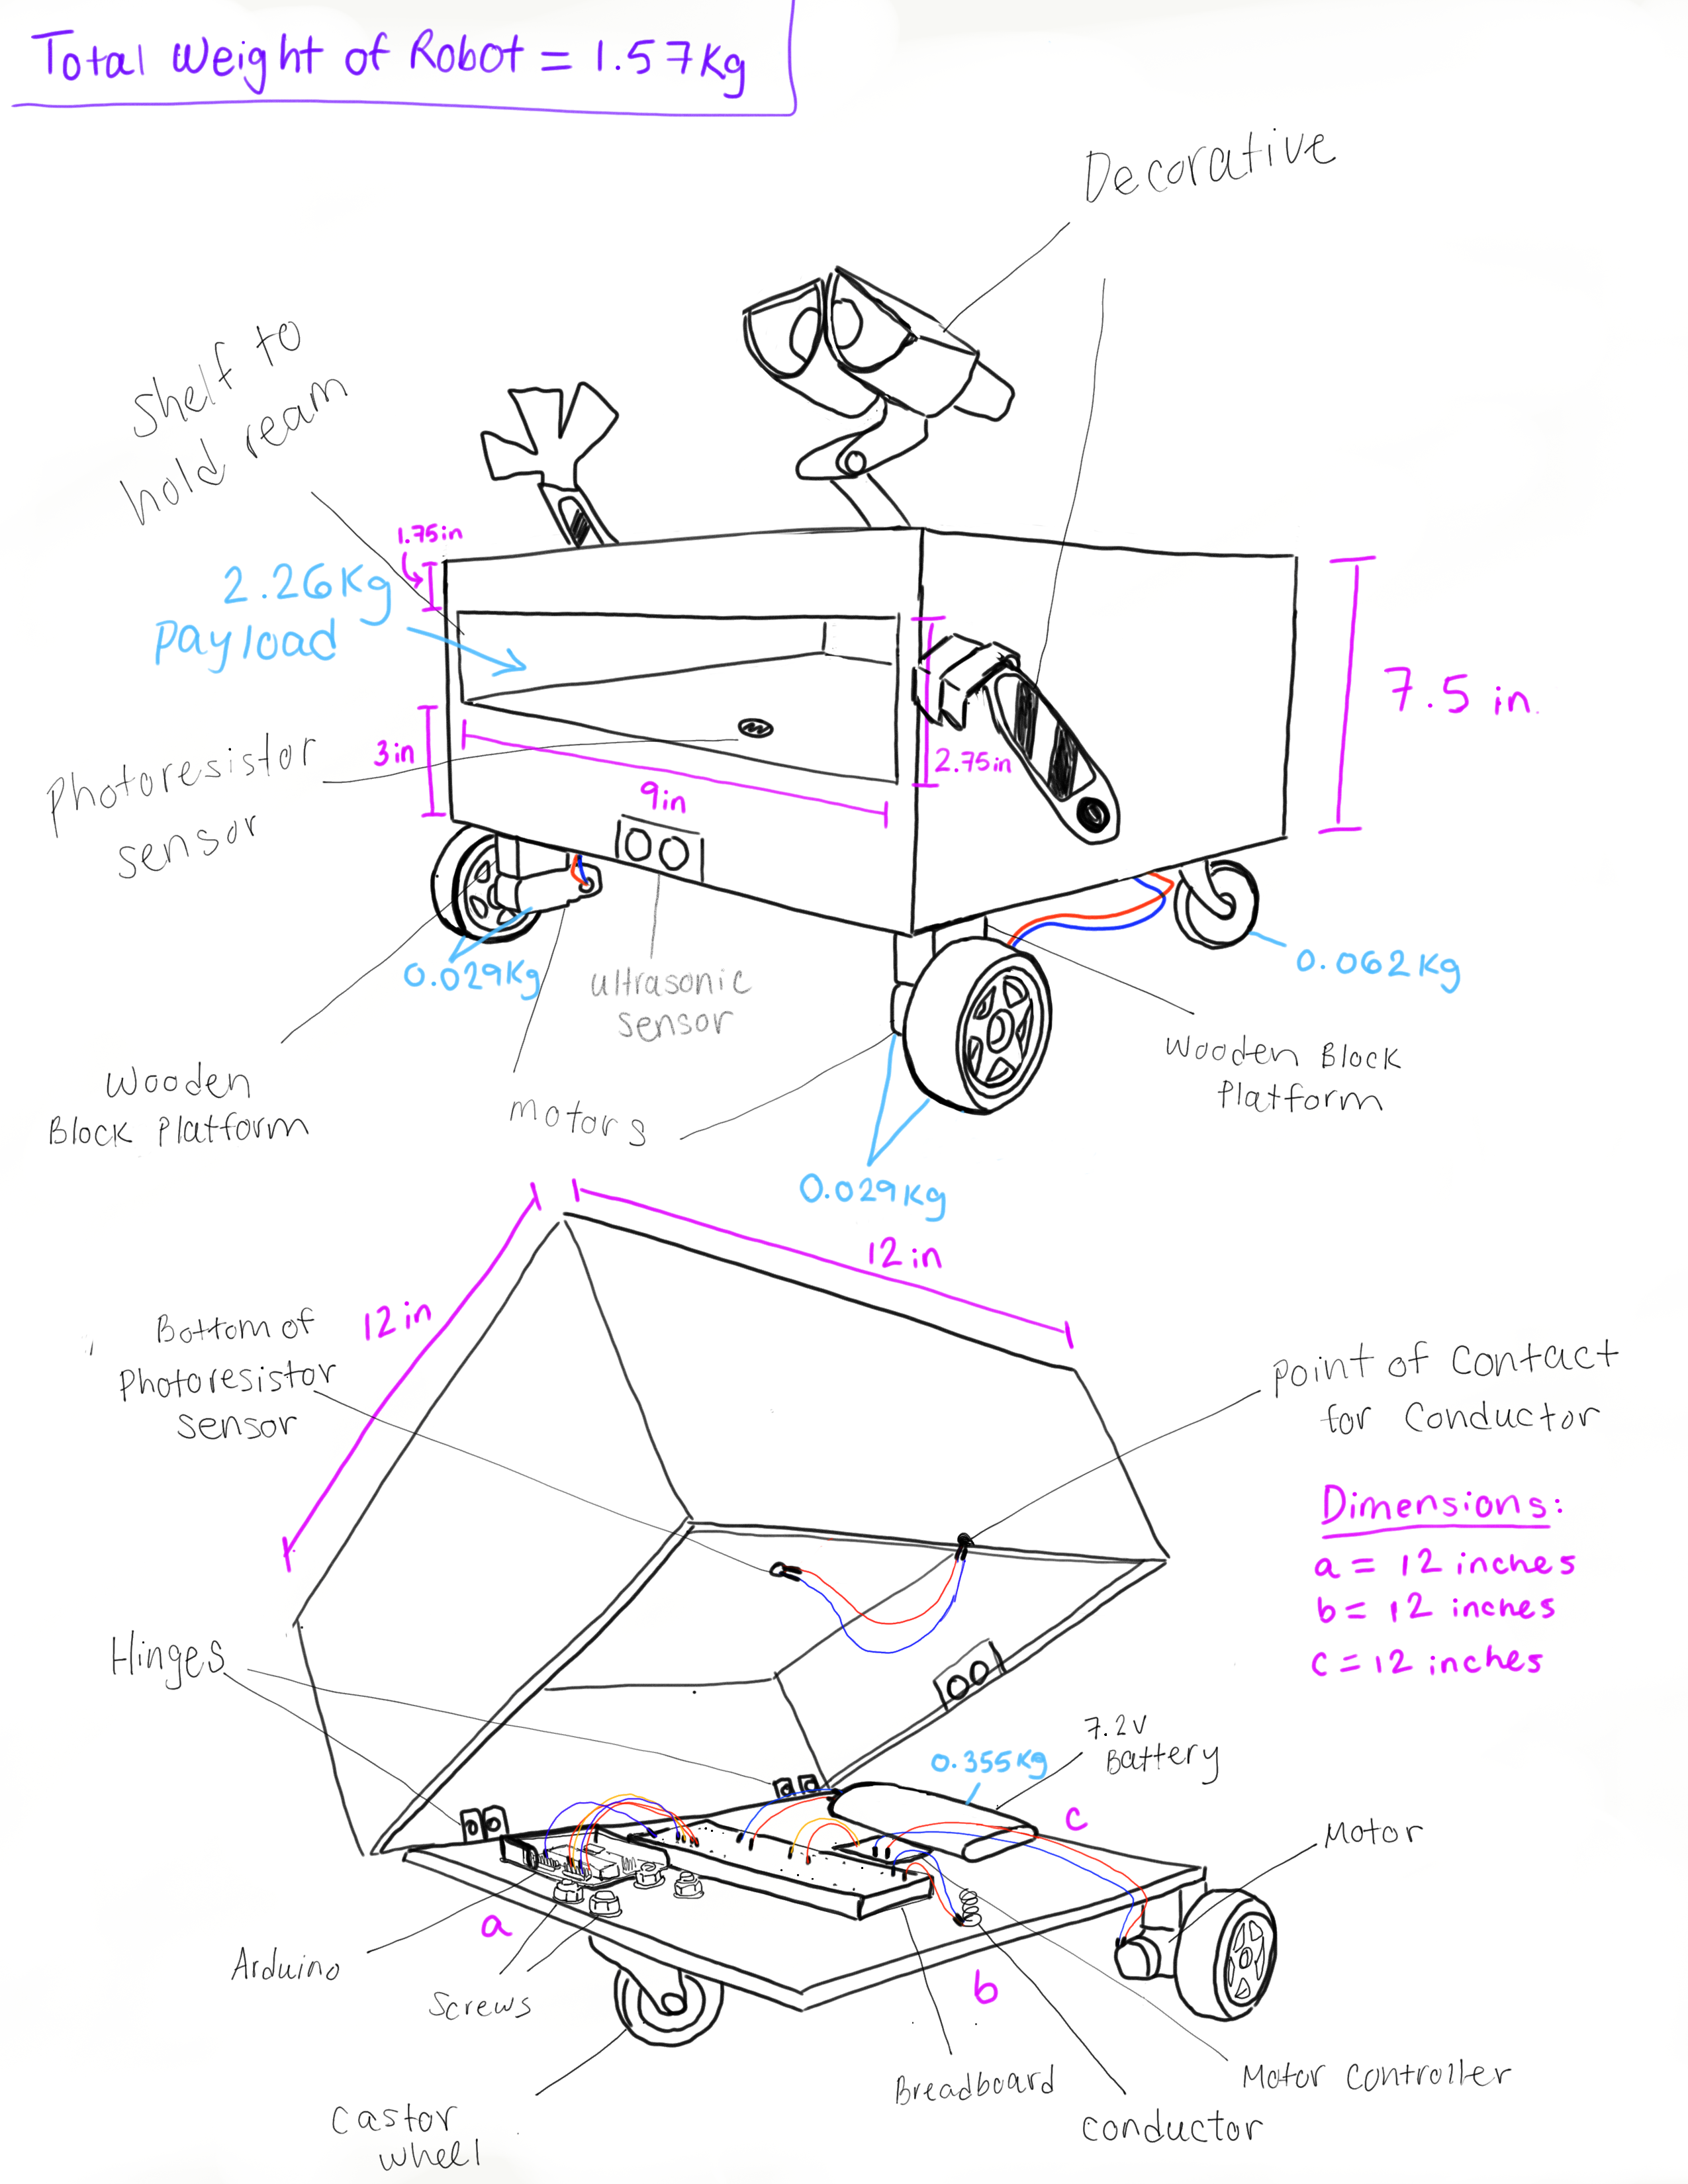 Total Weight of Robot = 1.57Kg
Decorative
Shelf to
hold ream
1.75in
2.26Kg
Payload
7.5 in.
3in
2.75in
9in
Photoresistor
sensor
0.029Kg
ultrasonic
sensor
0.062Kg
Wooden
Block Platform
motors
Wooden Block
Platform
0.029Kg
12in
12in
Bottom of
Photoresistor
sensor
Point of Contact
for Conductor
Dimensions:
a = 12 inches
b = 12 inches
c = 12 inches
Hinges
7.2V
Battery
0.355Kg
c
Motor
a
Arduino
Screws
b
Castor
wheel
Breadboard
Conductor
Motor Controller